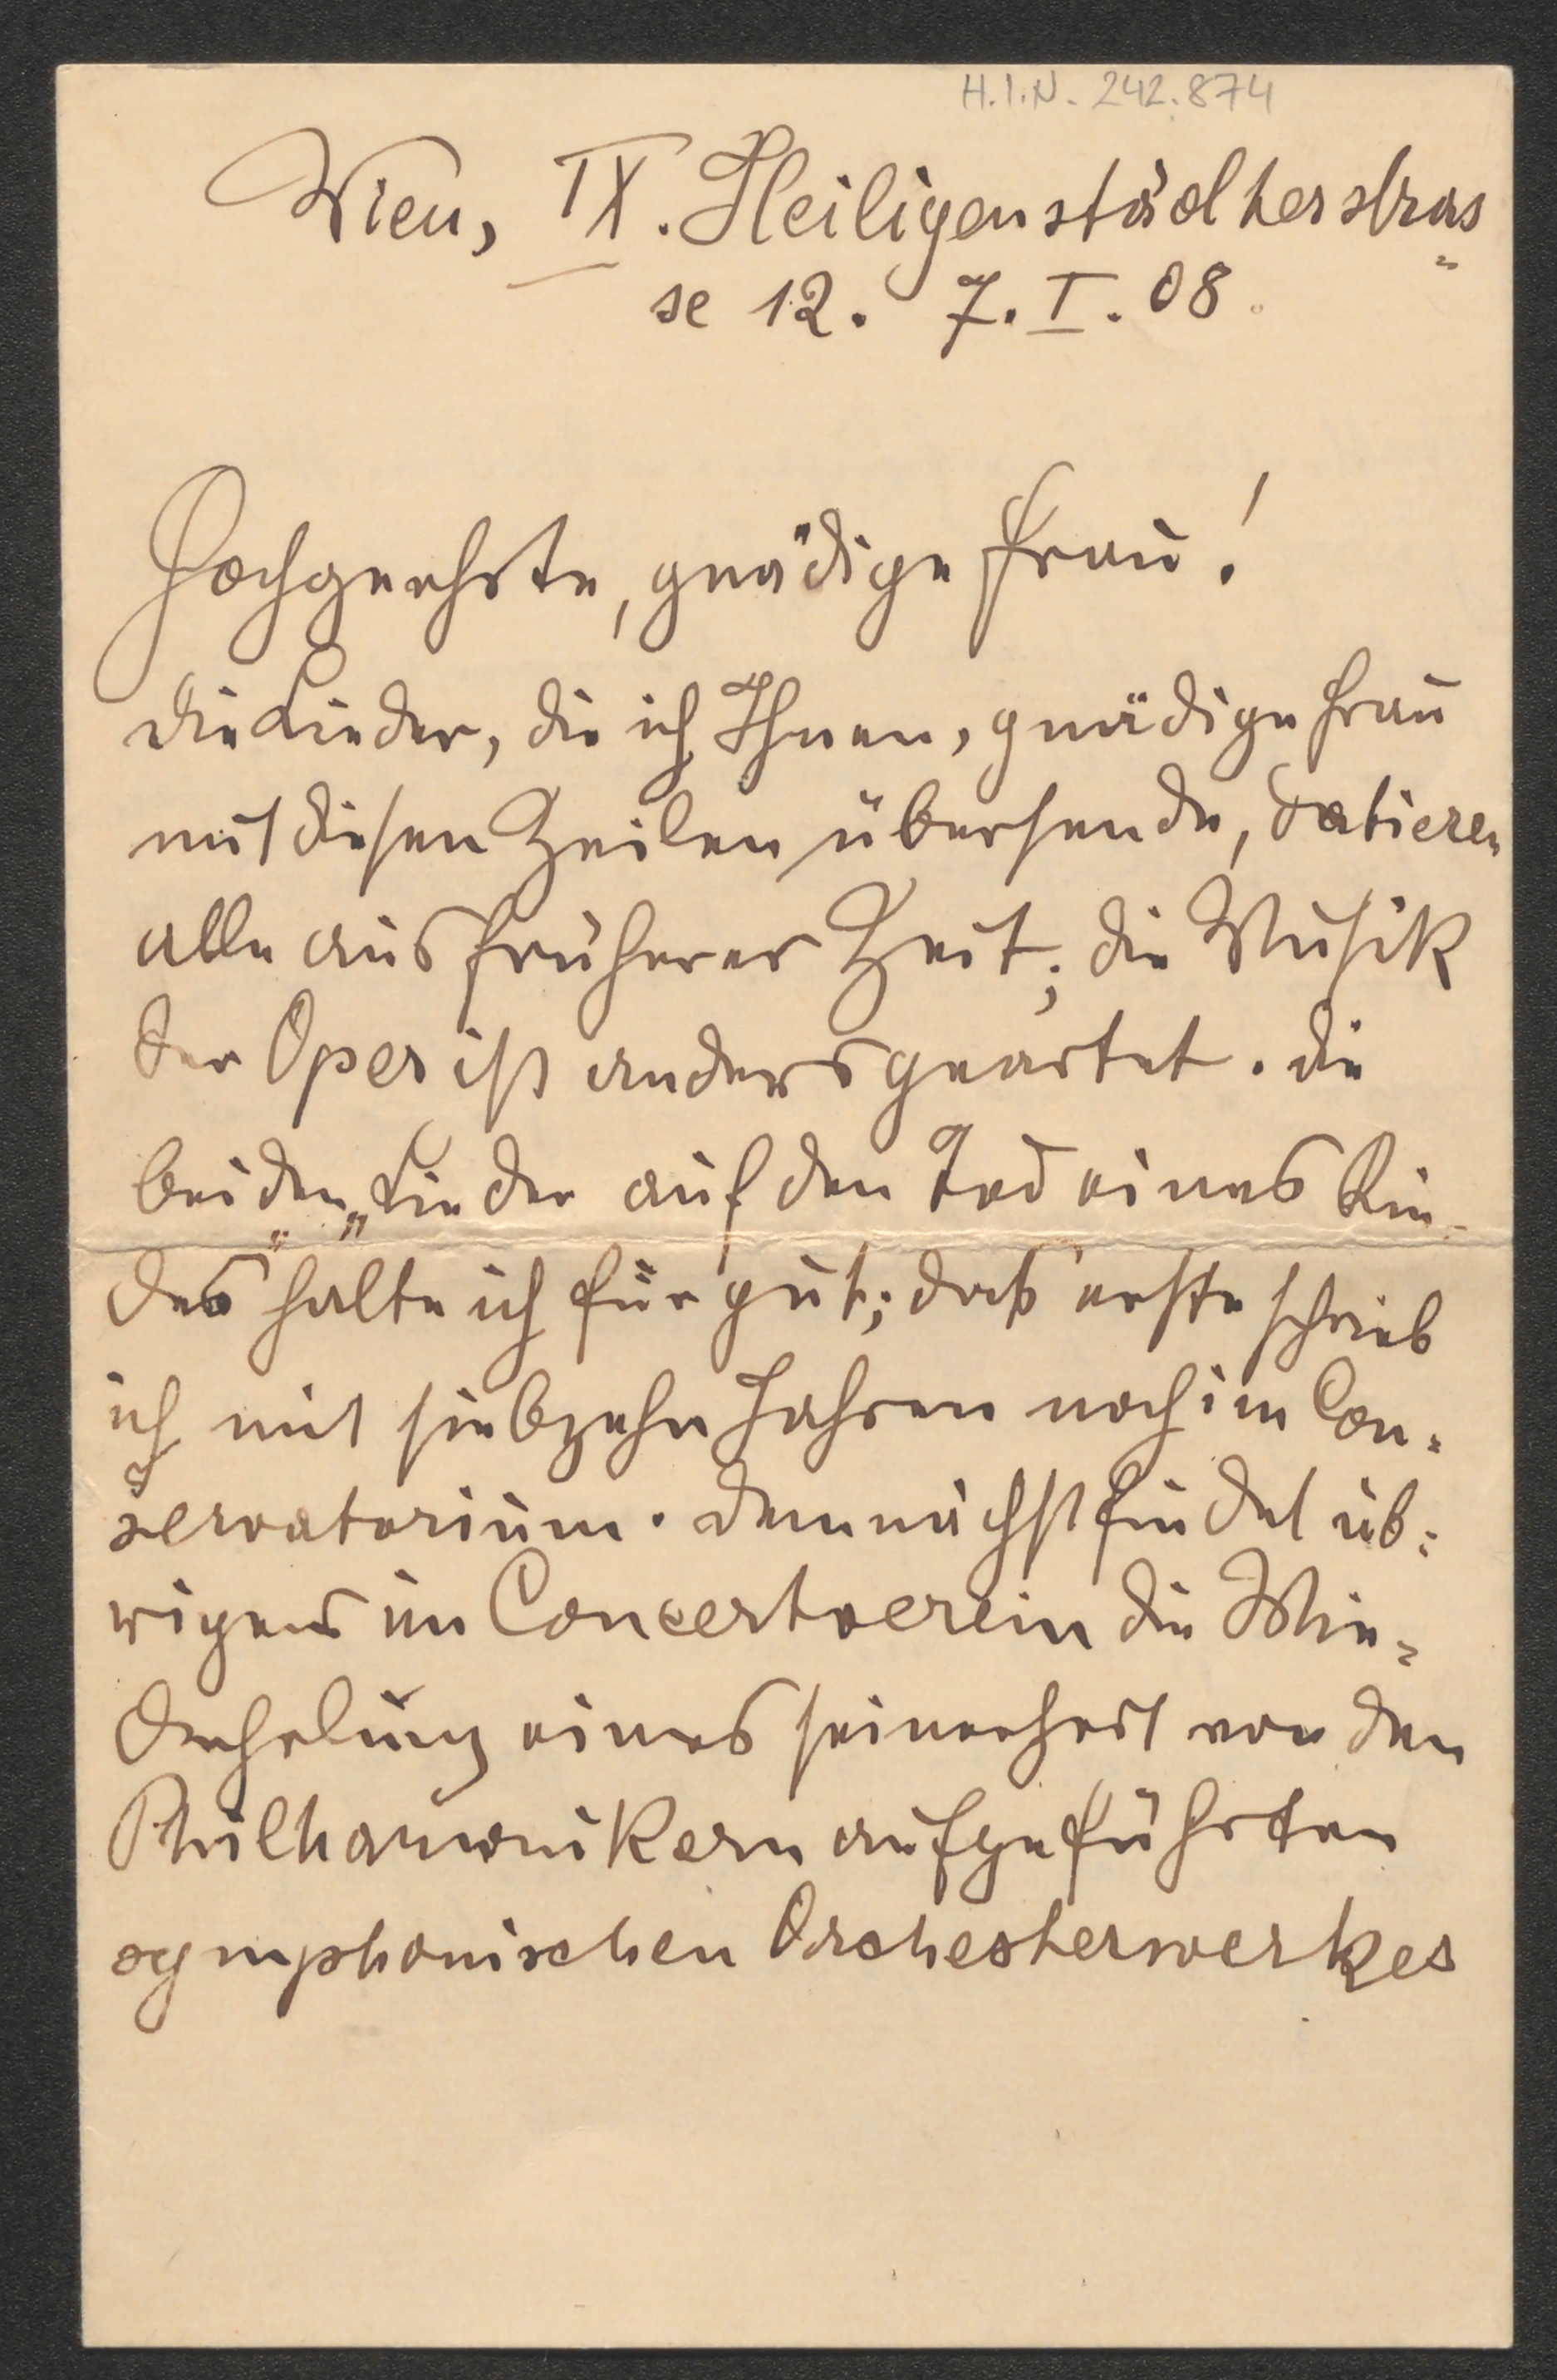 H.I.N. 242.874
Wien, IX. Heiligenstädterstras=
se 12. 7. I. 08.
Hochgeehrte, gnädige Frau!
Die Lieder, die ich Ihnen, gnädige Frau
mit diesen Zeilen übersende, datieren
alle aus früherer Zeit; die Musik
der Oper ist anders geartet. Die
beiden „Lieder auf den Tod eines Kin-
des“ halte ich für gut; das erste schrieb
ich mit siebzehn Jahren noch im Con=
servatorium. Demnächst findet üb=
rigens im Concertverein die Wie=
derholung eines seinerzeit von den
Philharmonikern aufgeführten
symphonischen Orchesterwerkes